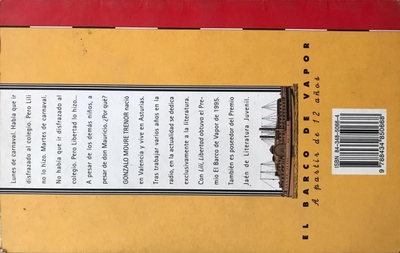 Lunes de carnaval. Había que ir
disfrazado al colegio. Pero Lili
no lo hizo. Martes de carnaval.
No había que ir disfrazado al
colegio. Pero Libertad lo hizo...
A pesar de los demás niños, a
pesar de don Mauricio. ¿Por qué?
GONZALO MOURE TRENOR nació
en Valencia y vive en Asturias.
Tras trabajar varios años en la
radio, en la actualidad se dedica
exclusivamente a la literatura.
Con Lili, Libertad obtuvo el Pre-
mio El Barco de Vapor de 1995.
También es poseedor del Premio
Jaén de Literatura Juvenil.
EL BARCO DE VAPOR
A partir de 12 años
ISBN 84-348-5086-4
9 788434 850868